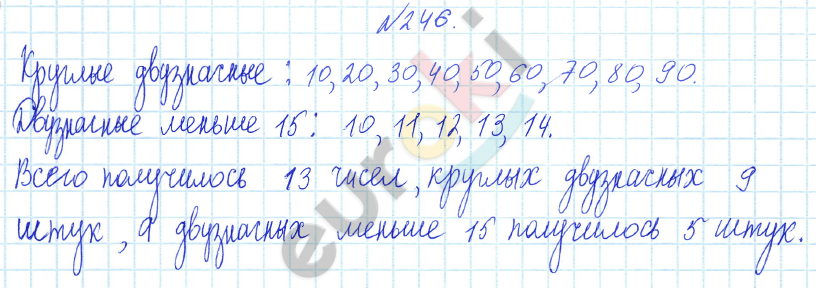 №246.
Круглые двузначные: 10, 20, 30, 40, 50, 60, 70, 80, 90.
Двузначные меньше 15: 10, 11, 12, 13, 14.
Всего получилось 13 чисел, круглых двузначных 9
штук, а двузначных меньше 15 получилось 5 штук.
euroki